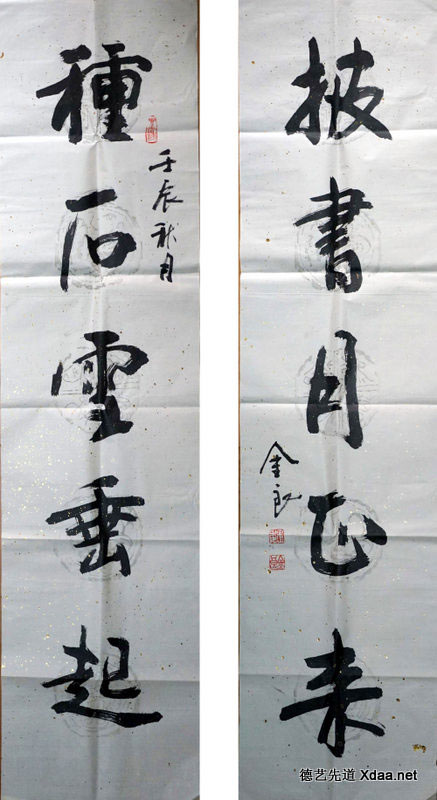 種石雲垂起
壬辰秋月
披書月正来
金良
德艺先道 Xdaa.net